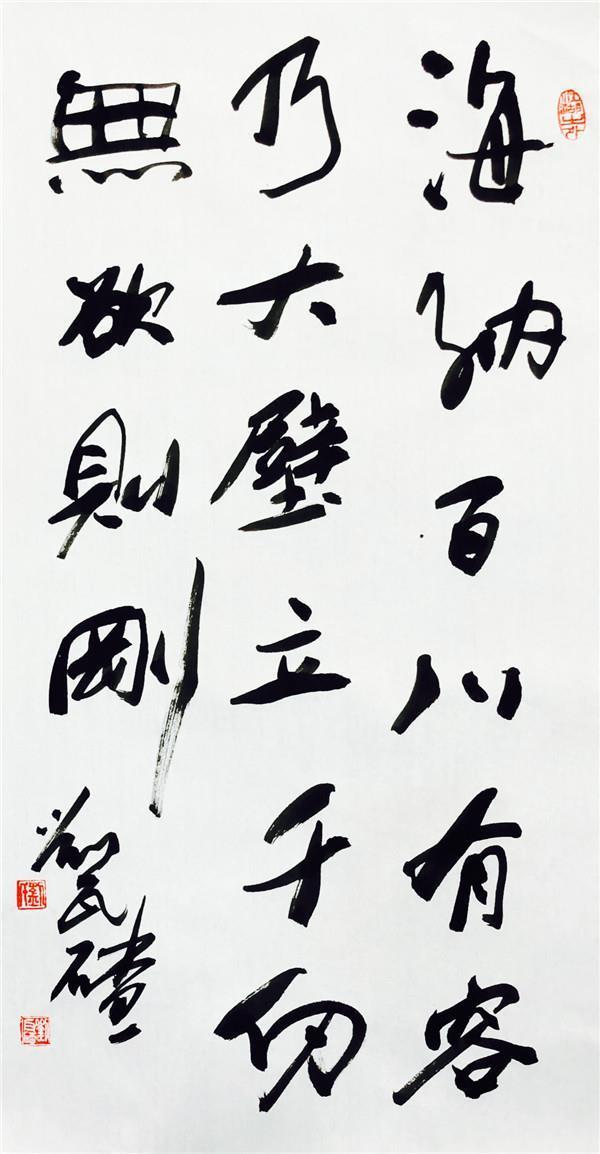 海納百川有容
乃大壁立千仞
無欲則剛